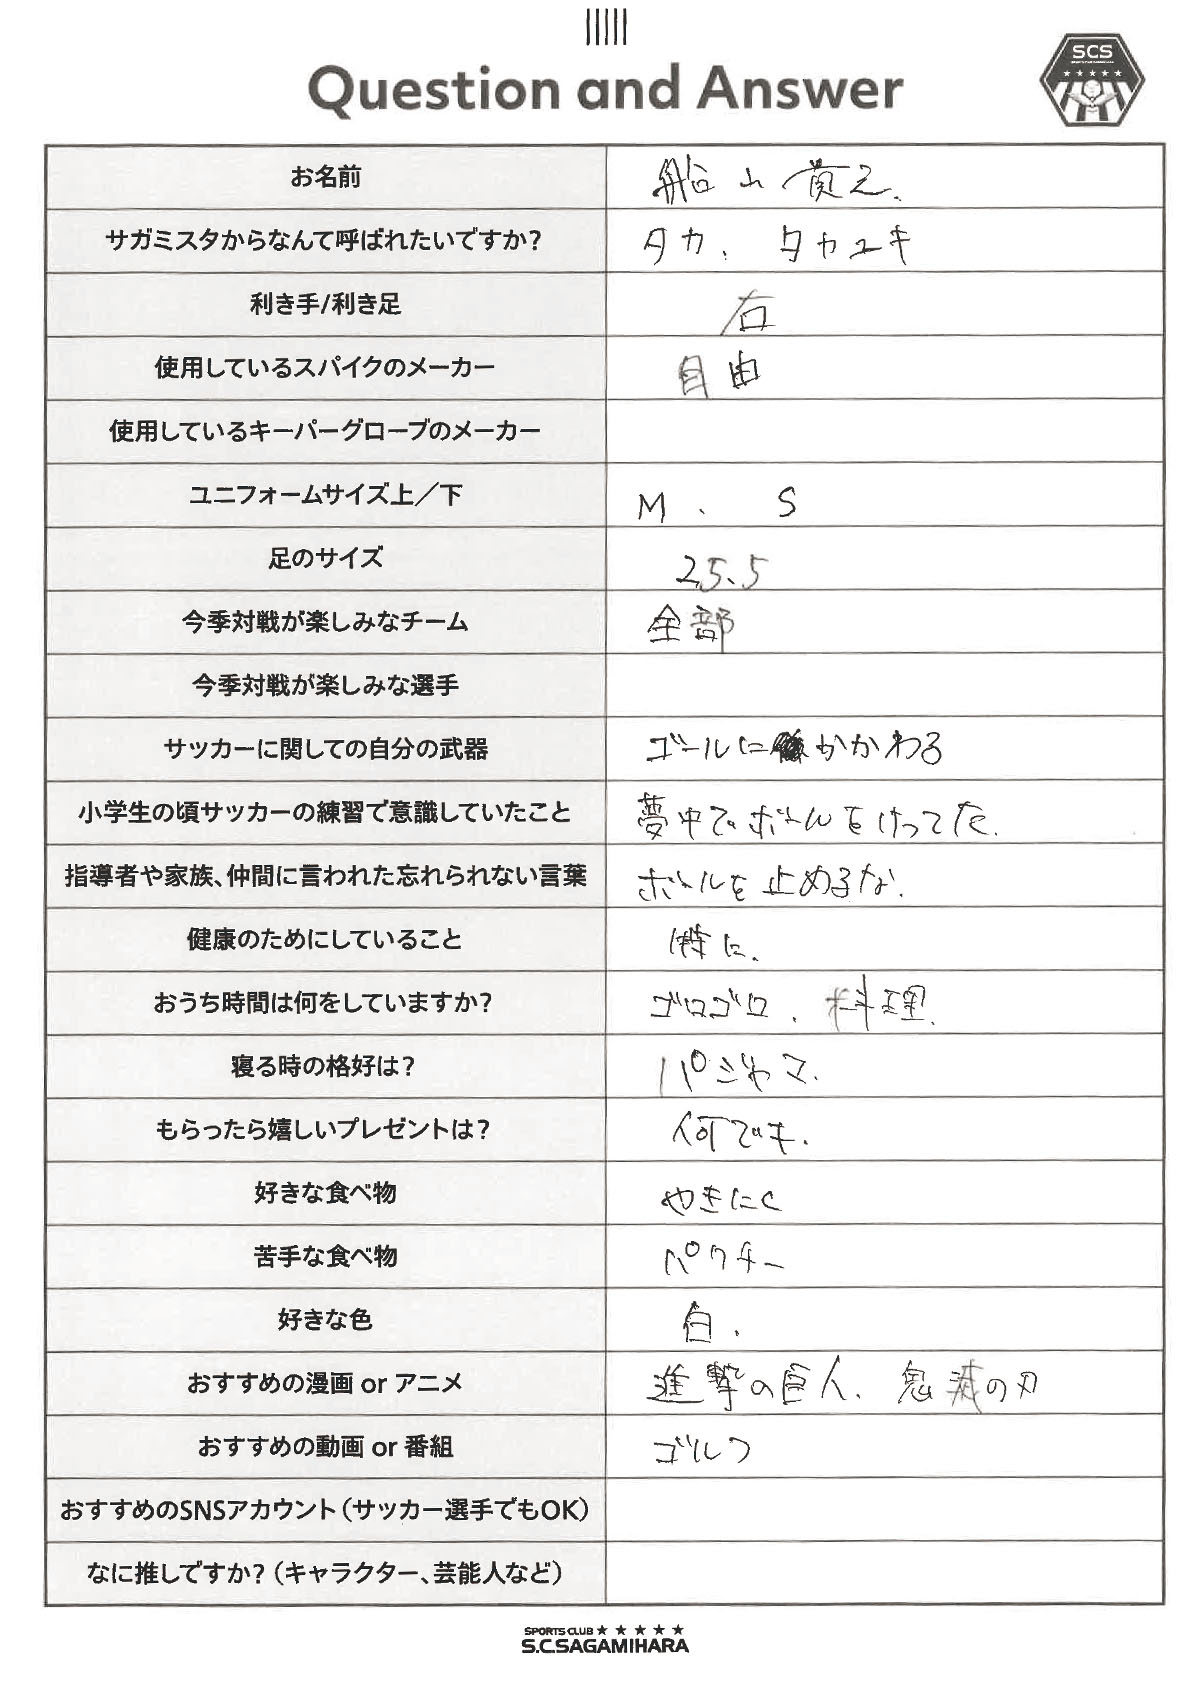 Question and Answer
SCS
お名前 船山貴之.
サガミスタからなんて呼ばれたいですか? タカ、タカユキ
利き手/利き足 右
使用しているスパイクのメーカー 自由
使用しているキーパーグローブのメーカー
ユニフォームサイズ上／下 M 、 S
足のサイズ 25.5
今季対戦が楽しみなチーム 全部
今季対戦が楽しみな選手
サッカーに関しての自分の武器 ゴールにかかわる
小学生の頃サッカーの練習で意識していたこと 夢中でボールをけってた.
指導者や家族、仲間に言われた忘れられない言葉 ボールを止めるな.
健康のためにしていること 特に.
おうち時間は何をしていますか? ゴロゴロ、料理.
寝る時の格好は? パジャマ.
もらったら嬉しいプレゼントは? 何でも.
好きな食べ物 やきにく
苦手な食べ物 パクチー
好きな色 白.
おすすめの漫画 or アニメ 進撃の巨人. 鬼滅の刃
おすすめの動画 or 番組 ゴルフ
おすすめのSNSアカウント（サッカー選手でもOK）
なに推しですか?（キャラクター、芸能人など）
SPORTS CLUB ★ ★ ★ ★ ★
S.C.SAGAMIHARA